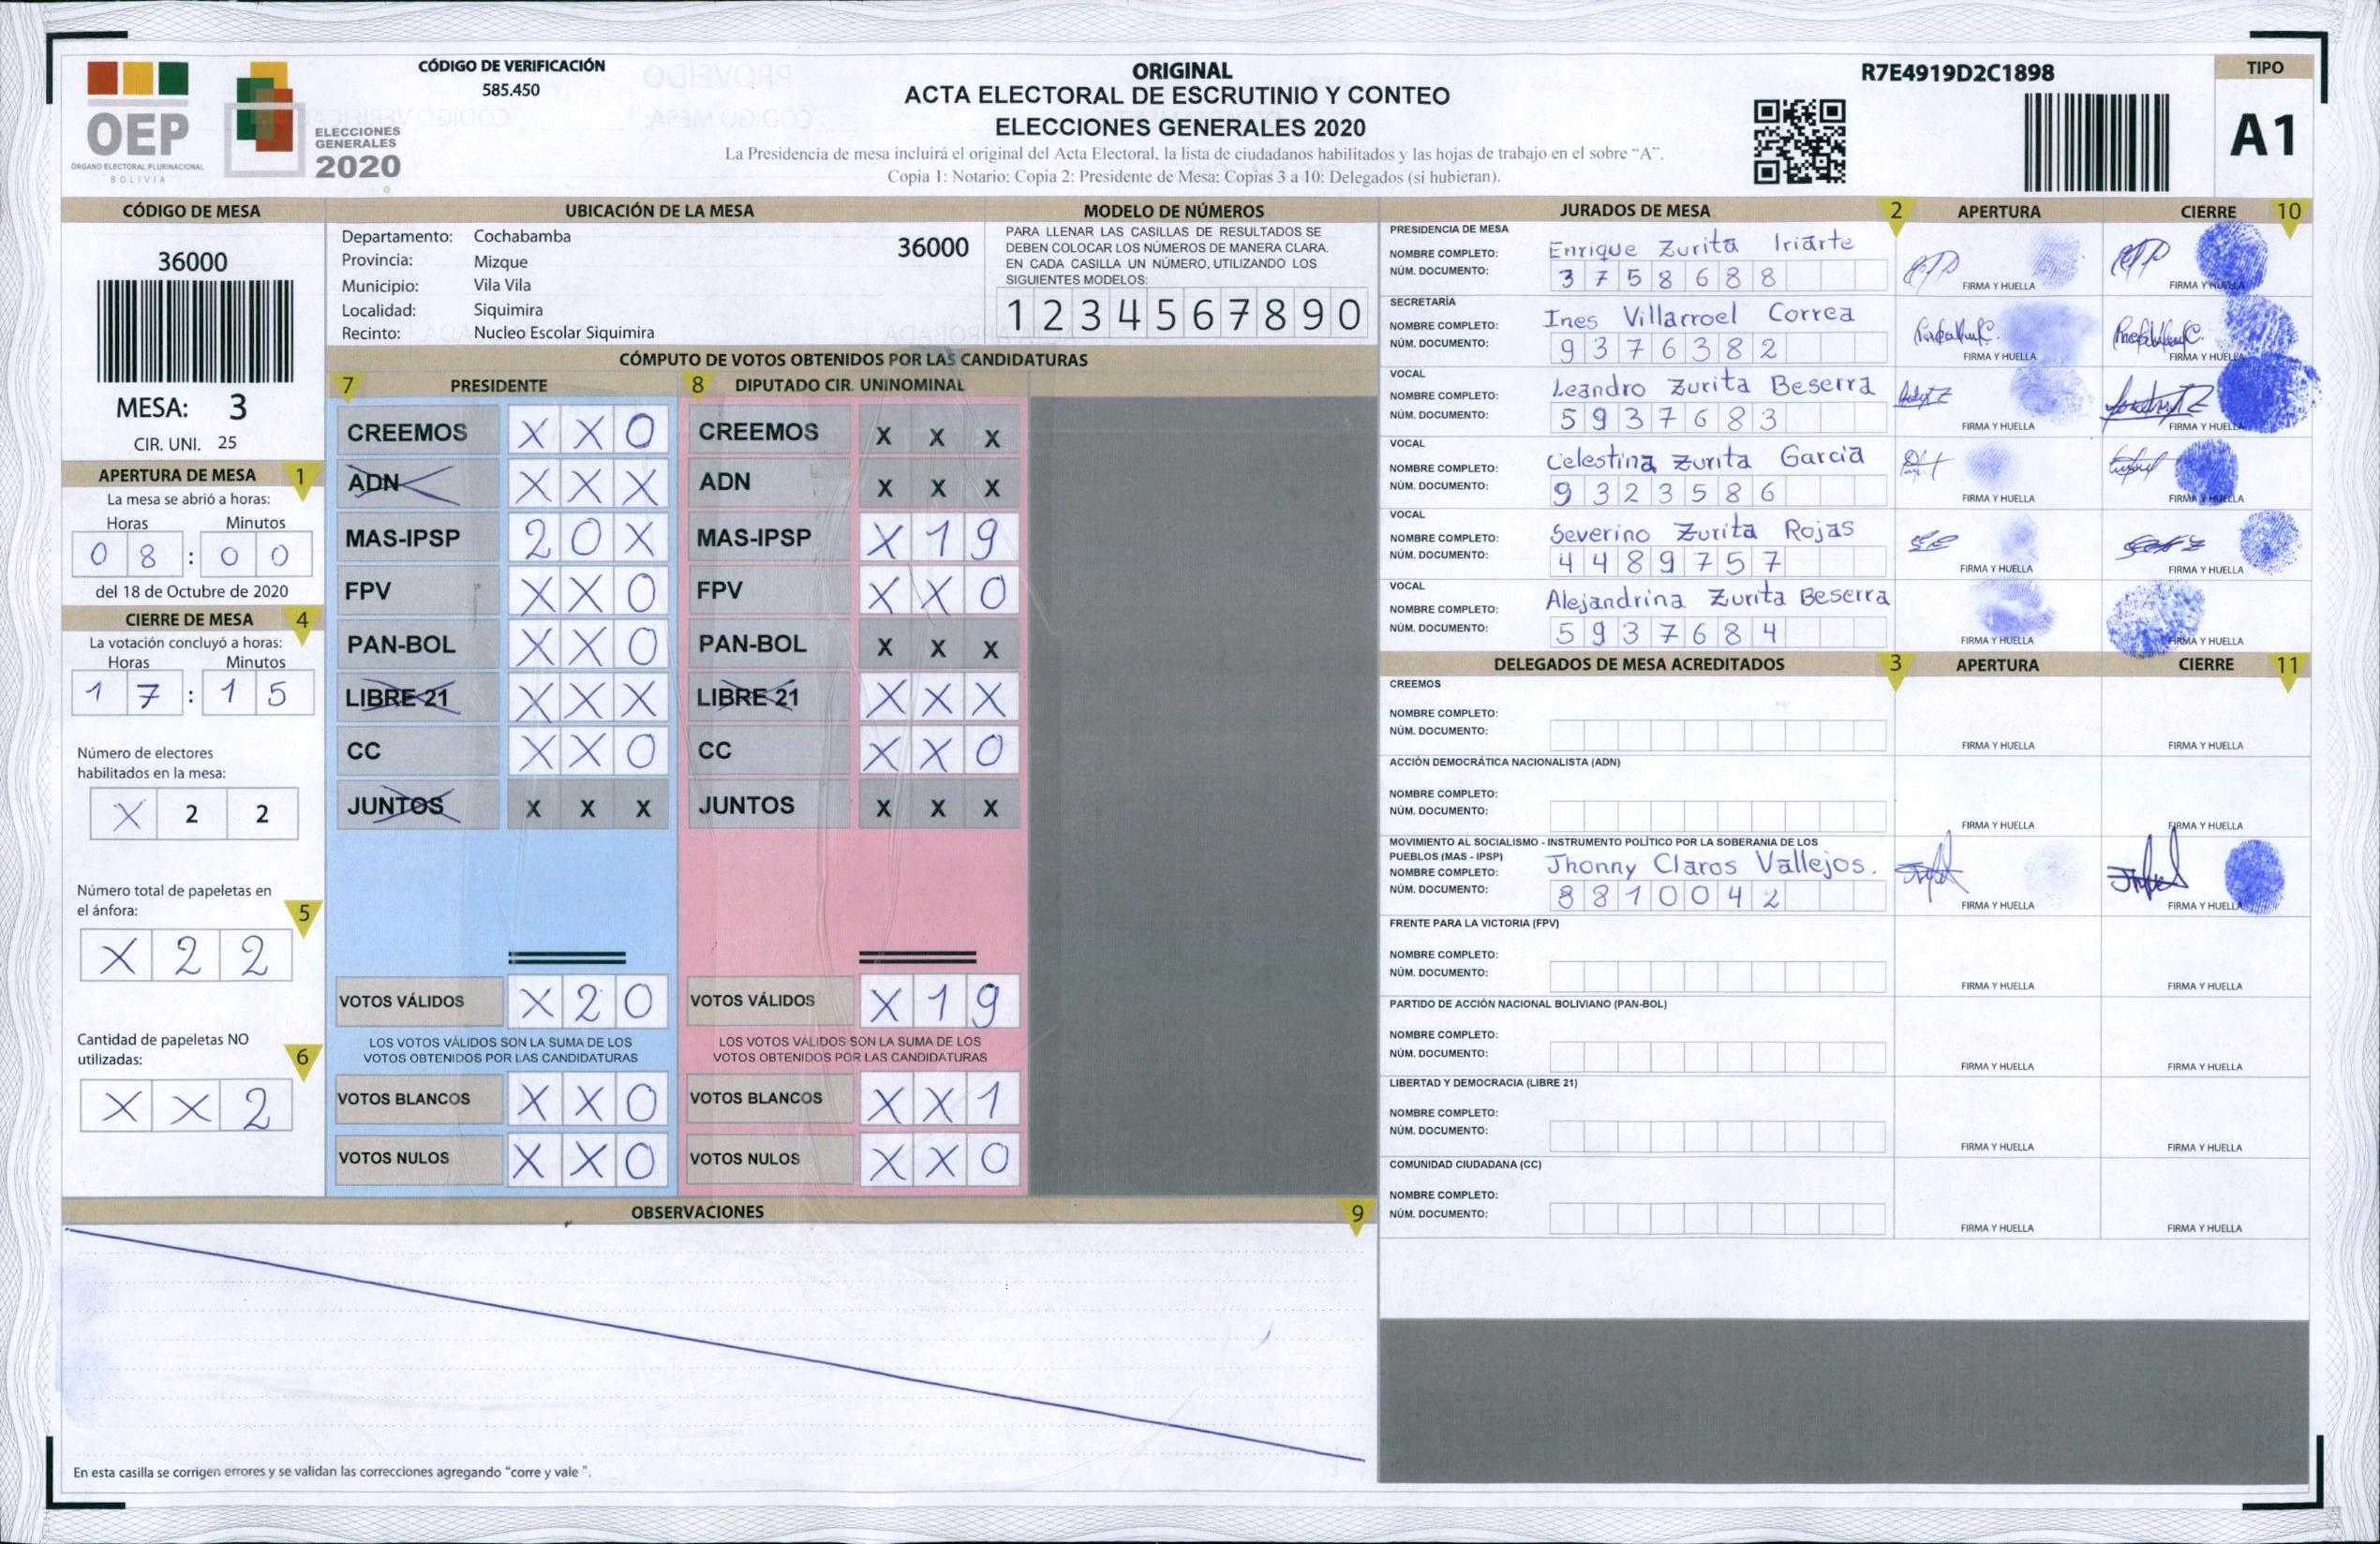 OEP
ÓRGANO ELECTORAL PLURINACIONAL
BOLIVIA
ELECCIONES
GENERALES
2020
CÓDIGO DE VERIFICACIÓN
585.450
ORIGINAL
ACTA ELECTORAL DE ESCRUTINIO Y CONTEO
ELECCIONES GENERALES 2020
La Presidencia de mesa incluirá el original del Acta Electoral, la lista de ciudadanos habilitados y las hojas de trabajo en el sobre “A”.
Copia 1: Notario: Copia 2: Presidente de Mesa: Copias 3 a 10: Delegados (si hubieran).
R7E4919D2C1898
TIPO
A1
CÓDIGO DE MESA
36000
MESA: 3
CIR. UNI. 25
APERTURA DE MESA 1
La mesa se abrió a horas:
Horas Minutos
0 8 : 0 0
del 18 de Octubre de 2020
CIERRE DE MESA 4
La votación concluyó a horas:
Horas Minutos
1 7 : 1 5
Número de electores
habilitados en la mesa:
X 2 2
Número total de papeletas en
el ánfora: 5
X 2 2
Cantidad de papeletas NO
utilizadas: 6
X X 2
UBICACIÓN DE LA MESA
Departamento: Cochabamba 36000
Provincia: Mizque
Municipio: Vila Vila
Localidad: Siquimira
Recinto: Nucleo Escolar Siquimira
MODELO DE NÚMEROS
PARA LLENAR LAS CASILLAS DE RESULTADOS SE
DEBEN COLOCAR LOS NÚMEROS DE MANERA CLARA.
EN CADA CASILLA UN NÚMERO, UTILIZANDO LOS
SIGUIENTES MODELOS:
1 2 3 4 5 6 7 8 9 0
CÓMPUTO DE VOTOS OBTENIDOS POR LAS CANDIDATURAS
7 PRESIDENTE 8 DIPUTADO CIR. UNINOMINAL
CREEMOS X X 0 CREEMOS X X X
ADN X X X ADN X X X
MAS-IPSP 2 0 X MAS-IPSP X 1 9
FPV X X 0 FPV X X 0
PAN-BOL X X 0 PAN-BOL X X X
LIBRE 21 X X X LIBRE 21 X X X
CC X X 0 CC X X 0
JUNTOS X X X JUNTOS X X X
VOTOS VÁLIDOS X 2 0 VOTOS VÁLIDOS X 1 9
LOS VOTOS VÁLIDOS SON LA SUMA DE LOS LOS VOTOS VÁLIDOS SON LA SUMA DE LOS
VOTOS OBTENIDOS POR LAS CANDIDATURAS VOTOS OBTENIDOS POR LAS CANDIDATURAS
VOTOS BLANCOS X X 0 VOTOS BLANCOS X X 1
VOTOS NULOS X X 0 VOTOS NULOS X X 0
OBSERVACIONES 9
En esta casilla se corrigen errores y se validan las correcciones agregando “corre y vale ”.
JURADOS DE MESA 2 APERTURA CIERRE 10
PRESIDENCIA DE MESA
NOMBRE COMPLETO: Enrique Zurita Iriarte
NÚM. DOCUMENTO: 3 7 5 8 6 8 8
FIRMA Y HUELLA FIRMA Y HUELLA
SECRETARÍA
NOMBRE COMPLETO: Ines Villarroel Correa
NÚM. DOCUMENTO: 9 3 7 6 3 8 2
FIRMA Y HUELLA FIRMA Y HUELLA
VOCAL
NOMBRE COMPLETO: Leandro Zurita Beserra
NÚM. DOCUMENTO: 5 9 3 7 6 8 3
FIRMA Y HUELLA FIRMA Y HUELLA
VOCAL
NOMBRE COMPLETO: Celestina Zurita Garcia
NÚM. DOCUMENTO: 9 3 2 3 5 8 6
FIRMA Y HUELLA FIRMA Y HUELLA
VOCAL
NOMBRE COMPLETO: Severino Zurita Rojas
NÚM. DOCUMENTO: 4 4 8 9 7 5 7
FIRMA Y HUELLA FIRMA Y HUELLA
VOCAL
NOMBRE COMPLETO: Alejandrina Zurita Beserra
NÚM. DOCUMENTO: 5 9 3 7 6 8 4
FIRMA Y HUELLA FIRMA Y HUELLA
DELEGADOS DE MESA ACREDITADOS 3 APERTURA CIERRE 11
CREEMOS
NOMBRE COMPLETO:
NÚM. DOCUMENTO:
FIRMA Y HUELLA FIRMA Y HUELLA
ACCIÓN DEMOCRÁTICA NACIONALISTA (ADN)
NOMBRE COMPLETO:
NÚM. DOCUMENTO:
FIRMA Y HUELLA FIRMA Y HUELLA
MOVIMIENTO AL SOCIALISMO - INSTRUMENTO POLÍTICO POR LA SOBERANIA DE LOS
PUEBLOS (MAS - IPSP)
NOMBRE COMPLETO: Jhonny Claros Vallejos.
NÚM. DOCUMENTO: 8 8 1 0 0 4 2
FIRMA Y HUELLA FIRMA Y HUELLA
FRENTE PARA LA VICTORIA (FPV)
NOMBRE COMPLETO:
NÚM. DOCUMENTO:
FIRMA Y HUELLA FIRMA Y HUELLA
PARTIDO DE ACCIÓN NACIONAL BOLIVIANO (PAN-BOL)
NOMBRE COMPLETO:
NÚM. DOCUMENTO:
FIRMA Y HUELLA FIRMA Y HUELLA
LIBERTAD Y DEMOCRACIA (LIBRE 21)
NOMBRE COMPLETO:
NÚM. DOCUMENTO:
FIRMA Y HUELLA FIRMA Y HUELLA
COMUNIDAD CIUDADANA (CC)
NOMBRE COMPLETO:
NÚM. DOCUMENTO:
FIRMA Y HUELLA FIRMA Y HUELLA